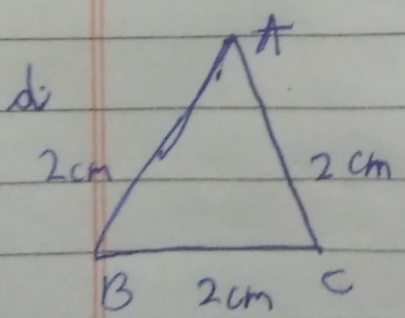 A
d.
2cm
2 cm
B
2cm
C